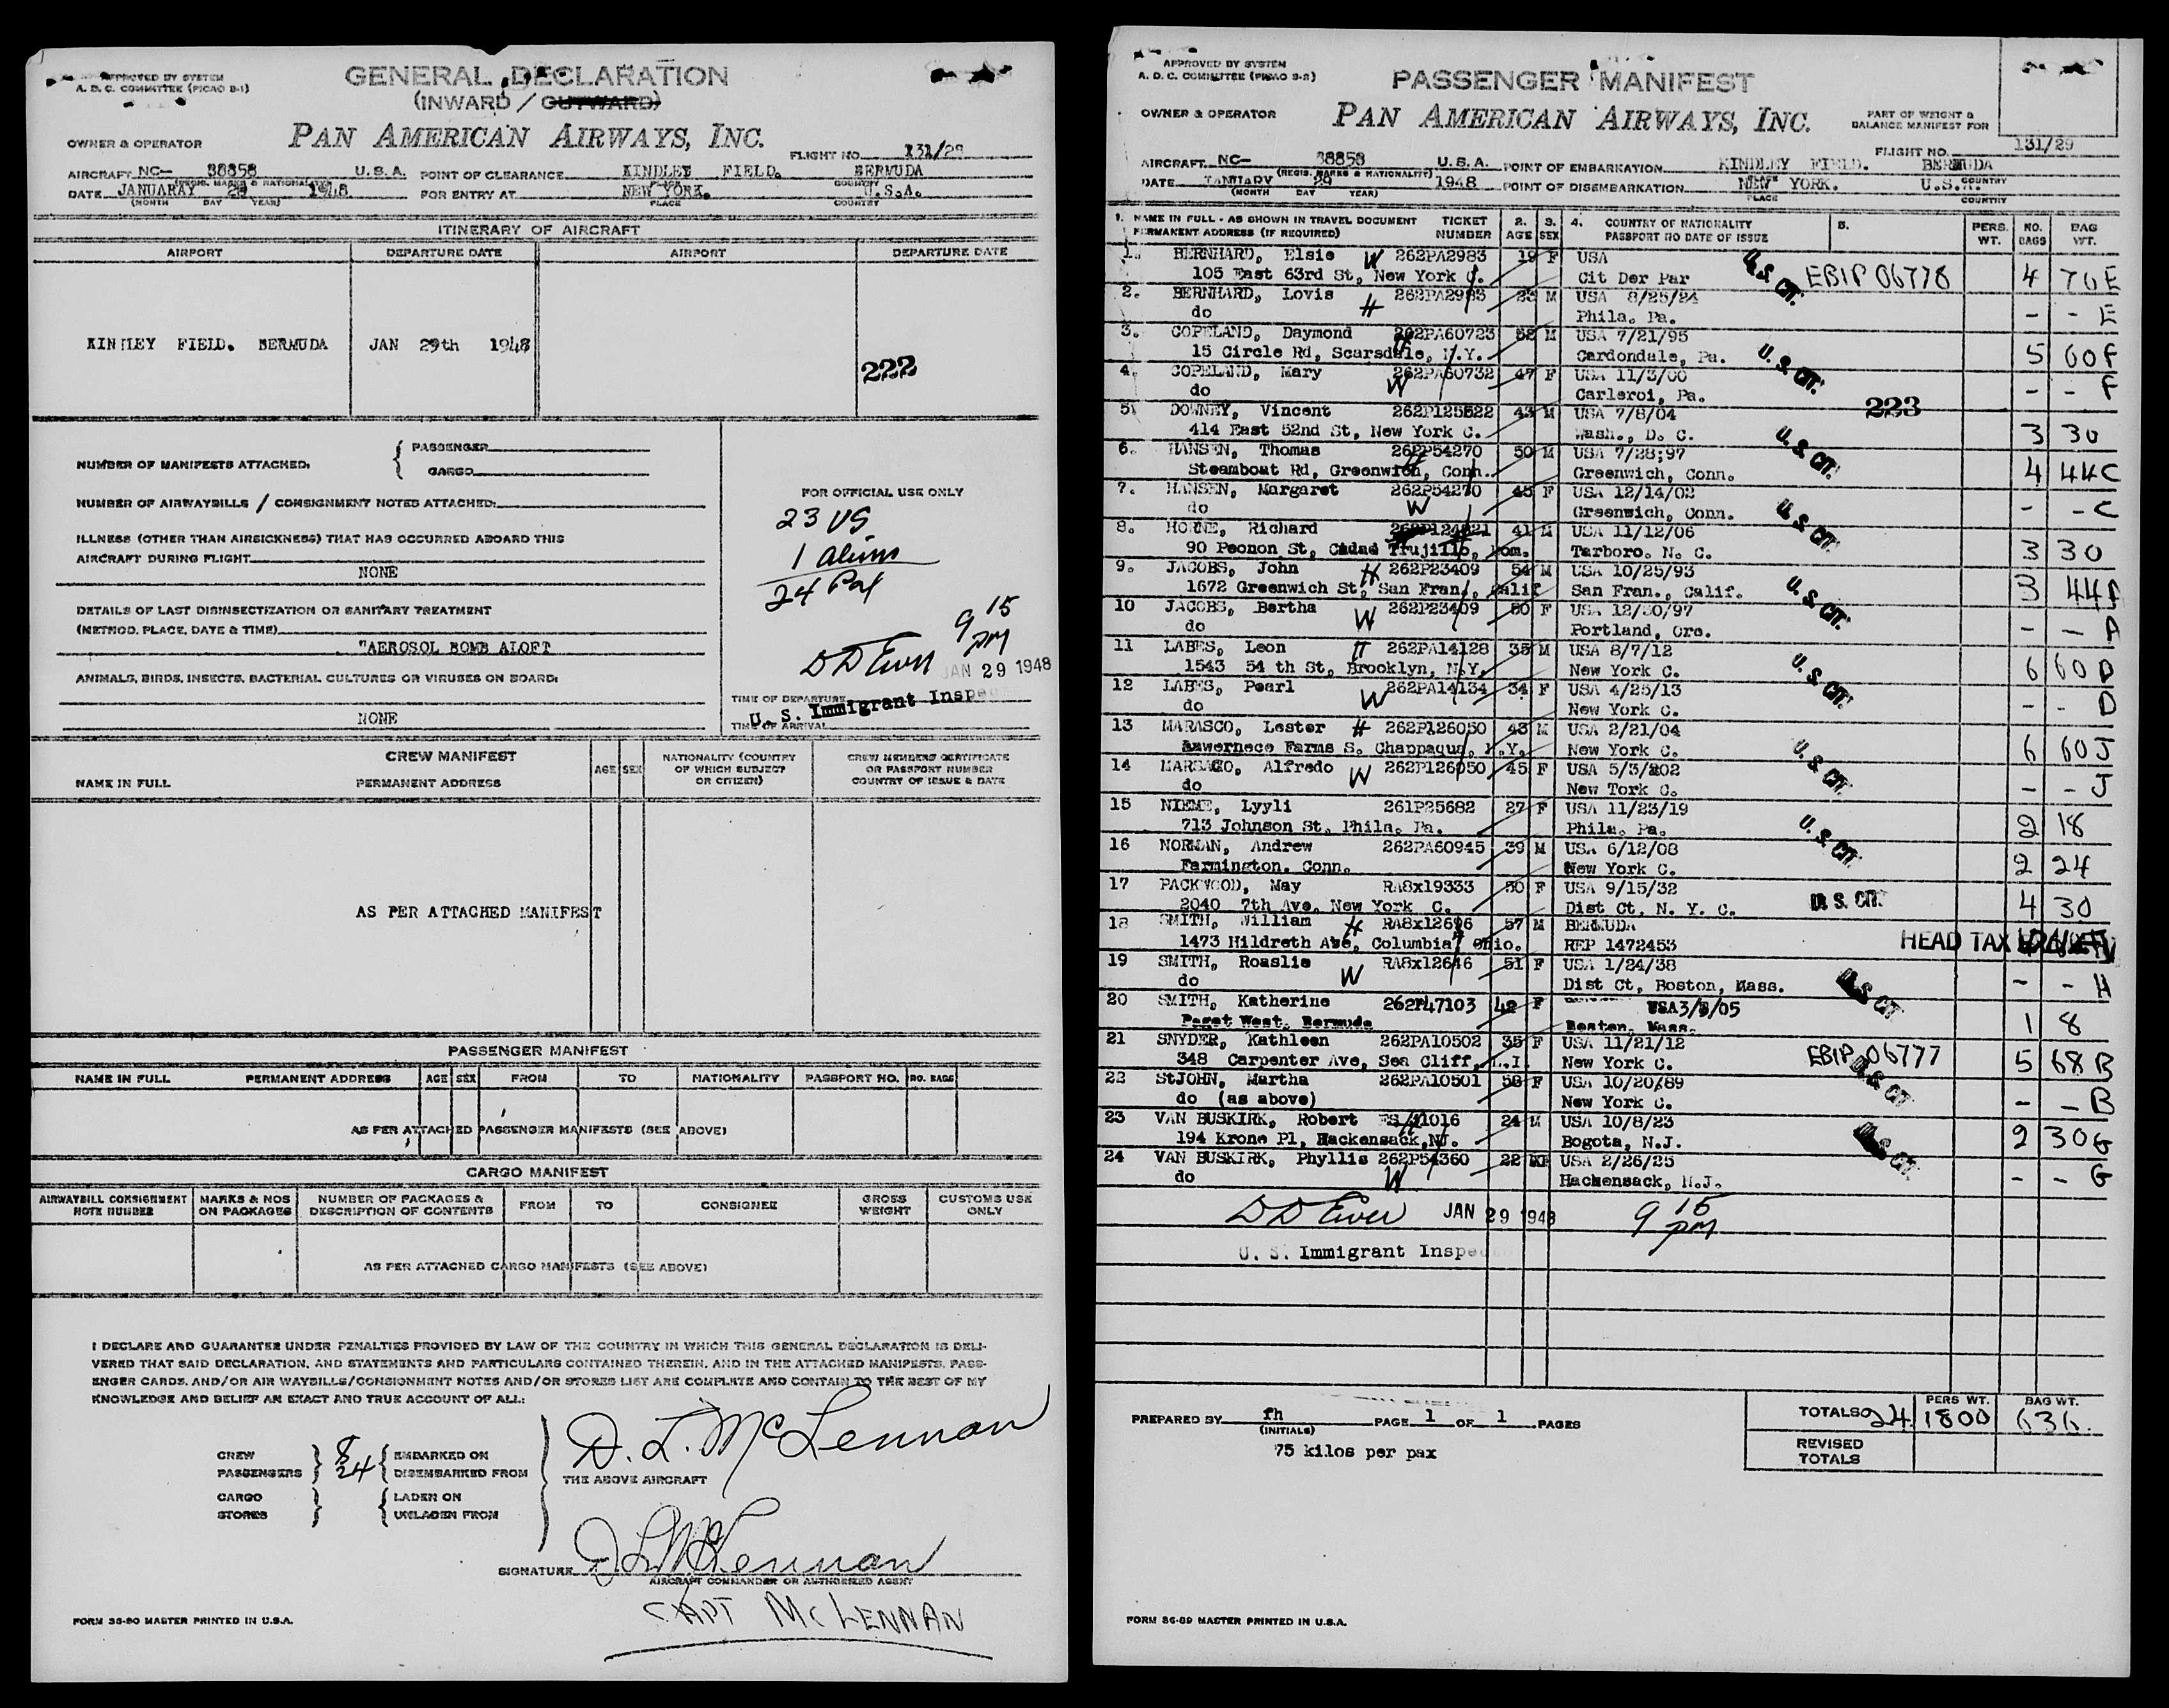 APPROVED BY SYSTEM
A. D. C. COMMITTEE (PICAO B-1)
GENERAL DECLARATION
(INWARD / OUTWARD)
OWNER & OPERATOR
PAN AMERICAN AIRWAYS, INC.
FLIGHT NO. 131/29
AIRCRAFT NC- 88858 U.S.A. POINT OF CLEARANCE KINDLEY FIELD. BERMUDA
(REGIS. MARKS & NATIONALITY) PLACE COUNTRY
DATE JANUARAY 29 1948 FOR ENTRY AT NEW YORK. U.S.A.
(MONTH DAY YEAR) PLACE COUNTRY
ITINERARY OF AIRCRAFT
AIRPORT DEPARTURE DATE AIRPORT DEPARTURE DATE
KINDLEY FIELD. BERMUDA JAN 29th 1948
222
NUMBER OF MANIFESTS ATTACHED: PASSENGER
CARGO
NUMBER OF AIRWAYBILLS / CONSIGNMENT NOTES ATTACHED:
ILLNESS (OTHER THAN AIRSICKNESS) THAT HAS OCCURRED ABOARD THIS
AIRCRAFT DURING FLIGHT
NONE
DETAILS OF LAST DISINSECTIZATION OR SANITARY TREATMENT
(METHOD, PLACE, DATE & TIME)
"AEROSOL BOMB ALOFT
ANIMALS, BIRDS, INSECTS, BACTERIAL CULTURES OR VIRUSES ON BOARD:
NONE
FOR OFFICIAL USE ONLY
23 US
1 Aliens
24 Pax
9 15 PM
JAN 29 1948
TIME OF DEPARTURE
U. S. Immigrant Inspe
TIME OF ARRIVAL
CREW MANIFEST
NAME IN FULL PERMANENT ADDRESS AGE SEX NATIONALITY (COUNTRY OF WHICH SUBJECT OR CITIZEN) CREW MEMBERS CERTIFICATE OR PASSPORT NUMBER COUNTRY OF ISSUE & DATE
AS PER ATTACHED MANIFEST
PASSENGER MANIFEST
NAME IN FULL PERMANENT ADDRESS AGE SEX FROM TO NATIONALITY PASSPORT NO. NO. BAGS
AS PER ATTACHED PASSENGER MANIFESTS (SEE ABOVE)
CARGO MANIFEST
AIRWAYBILL CONSIGNMENT NOTE NUMBER MARKS & NOS ON PACKAGES NUMBER OF PACKAGES & DESCRIPTION OF CONTENTS FROM TO CONSIGNEE GROSS WEIGHT CUSTOMS USE ONLY
AS PER ATTACHED CARGO MANIFESTS (SEE ABOVE)
I DECLARE AND GUARANTEE UNDER PENALTIES PROVIDED BY LAW OF THE COUNTRY IN WHICH THIS GENERAL DECLARATION IS DELI-
VERED THAT SAID DECLARATION, AND STATEMENTS AND PARTICULARS CONTAINED THEREIN, AND IN THE ATTACHED MANIFESTS, PASS-
ENGER CARDS, AND/OR AIR WAYBILLS/CONSIGNMENT NOTES AND/OR STORES LIST ARE COMPLETE AND CONTAIN TO THE BEST OF MY
KNOWLEDGE AND BELIEF AN EXACT AND TRUE ACCOUNT OF ALL:
CREW 8 EMBARKED ON
PASSENGERS 24 DISEMBARKED FROM
CARGO LADEN ON
STORES UNLADEN FROM
D. L. McLennan
THE ABOVE AIRCRAFT
SIGNATURE D L McLennan
AIRCRAFT COMMANDER OR AUTHORIZED AGENT
CAPT MCLENNAN
FORM 36-90 MASTER PRINTED IN U.S.A.
APPROVED BY SYSTEM
A. D. C. COMMITTEE (PICAO B-2)
PASSENGER MANIFEST
OWNER & OPERATOR
PAN AMERICAN AIRWAYS, INC.
PART OF WEIGHT & BALANCE MANIFEST FOR
FLIGHT NO. 131/29
AIRCRAFT NC- 88858 U.S.A. POINT OF EMBARKATION KINDLEY FIELD. BERMUDA
(REGIS. MARKS & NATIONALITY) PLACE COUNTRY
DATE JANUARY 29 1948 POINT OF DISEMBARKATION NEW YORK. U.S.A.
(MONTH DAY YEAR) PLACE COUNTRY
1. NAME IN FULL - AS SHOWN IN TRAVEL DOCUMENT TICKET 2. 3. 4. COUNTRY OF NATIONALITY 5. PERS. NO. BAG
PERMANENT ADDRESS (IF REQUIRED) NUMBER AGE SEX PASSPORT NO DATE OF ISSUE WT. BAGS WT.
1. BERNHARD, Elsie W 262PA2983 19 F USA
105 East 63rd St, New York C. Cit Der Par U.S. CIT. EBIP 06778 4 70 E
2. BERNHARD, Lovis H 262PA2983 23 M USA 8/25/24
do Phila. Pa. - - E
3. COPELAND, Daymond 262PA60723 52 M USA 7/21/95
15 Circle Rd, Scarsdale, N.Y. H Cardondale, Pa. U. S. CIT. 5 60 F
4. COPELAND, Mary 262PA60732 47 F USA 11/3/00
do W Carleroi, Pa. - - F
223
5. DOWNEY, Vincent 262P125522 43 M USA 7/8/04
414 East 52nd St, New York C. Wash., D. C. U. S. CIT. 3 30
6. HANSEN, Thomas 262P54270 50 M USA 7/28;97
Steamboat Rd, Greenwich, Conn. H Greenwich, Conn. 4 44 C
7. HANSEN, Margaret 262P54270 45 F USA 12/14/02
do W Greenwich, Conn. U. S. CIT. - - C
8. HORNE, Richard 41 M USA 11/12/06
90 Peonon St, Cidad Trujillo, Dom. Tarboro. N. C. 3 30
9. JACOBS, John H 262P23409 54 M USA 10/25/93
1672 Greenwich St, San Fran., Calif San Fran., Calif. U. S. CIT. 3 44 A
10 JACOBS, Bertha W 262P23409 50 F USA 12/30/97
do Portland, Ore. - - A
11 LABES, Leon H 262PA14128 35 M USA 8/7/12
1543 54 th St, Brooklyn, N.Y. New York C. U. S. CIT. 6 60 D
12 LABES, Pearl W 262PA14134 34 F USA 4/25/13
do New York C. - - D
13 MARASCO, Lester H 262P126050 43 M USA 2/21/04
Lawernece Farms S. Chappaqua, N.Y. New York C. U. S. CIT. 6 60 J
14 MARSACO, Alfredo W 262P126050 45 F USA 5/3/202
do New Tork C. - - J
15 NIEME, Lyyli 261P25682 27 F USA 11/23/19
713 Johnson St. Phila. Pa. Phila. Pa. U. S. CIT. 2 18
16 NORMAN, Andrew 262PA60945 39 M USA 6/12/08
Farmington. Conn. New York C. 2 24
17 PACKWOOD, May RA8x19333 50 F USA 9/15/32
2040 7th Ave. New York C. Dist Ct. N. Y. C. U. S. CIT. 4 30
18 SMITH, William H RA8x12696 57 M BERMUDA
1473 Hildreth Ave, Columbia, Ohio. REP 1472453 HEAD TAX
19 SMITH, Roaslie W RA8x12646 51 F USA 1/24/38
do Dist Ct, Boston, Mass. U.S. CIT. - - H
20 SMITH, Katherine 262P47103 42 F USA3/8/05
Paget West. Bermuda Boston. Mass. 1 8
21 SNYDER, Kathleen 262PA10502 35 F USA 11/21/12
348 Carpenter Ave, Sea Cliff, L.I. New York C. EBIP 06777 5 68 B
22 StJOHN, Martha 262PA10501 58 F USA 10/20/89
do (as above) New York C. U.S. CIT. - - B
23 VAN BUSKIRK, Robert 24 M USA 10/8/23
194 Krone Pl, Hackensack, NJ. Bogota, N.J. U.S. CIT. 2 30 G
24 VAN BUSKIRK, Phyllis 262P54360 22 F USA 2/26/25
do W Hackensack, N.J. - - G
JAN 29 1948 9 15 PM
U. S. Immigrant Inspec
PREPARED BY fh PAGE 1 OF 1 PAGES
(INITIALS)
75 kilos per pax
PERS WT. BAG WT.
TOTALS 24 1800 636.
REVISED TOTALS
FORM 36-89 MASTER PRINTED IN U.S.A.